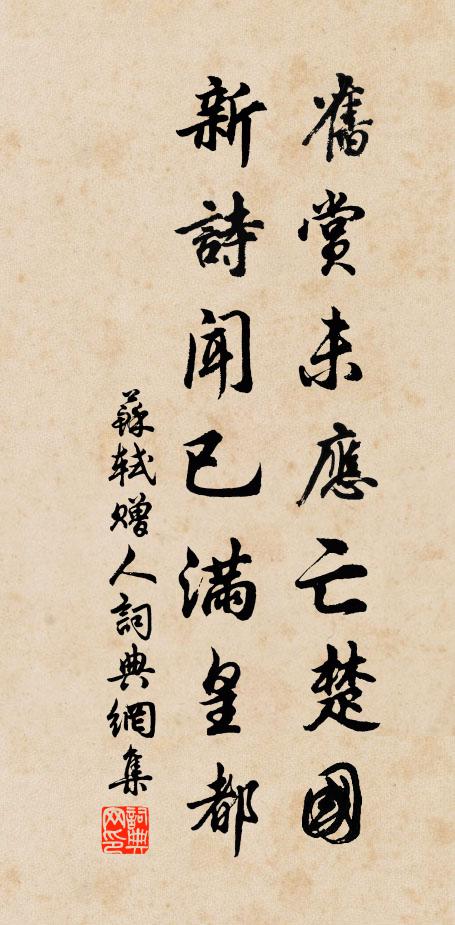 舊賞未應亡楚國
新詩聞已滿皇都
蘇軾贈人詞典網集
詞典
网印